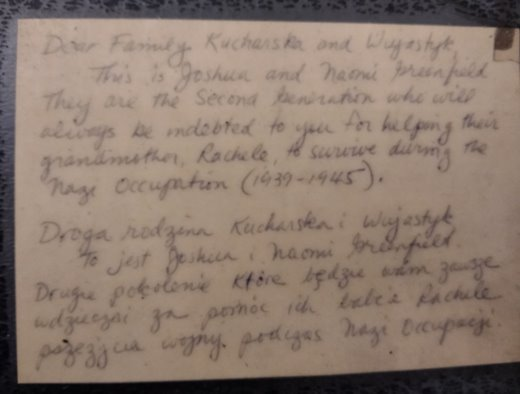 Dear Family Kucharska and Wujastyk,
This is Joshua and Naomi Greenfield
They are the Second Generation who will
always be indebted to you for helping their
grandmother, Rachele, to survive during the
Nazi Occupation (1939-1945).
Droga rodzina Kucharska i Wujastyk
To jest Joshua i Naomi Greenfield.
Drugie pokolenie które będzie wam zawsze
za pomóc ich Rachele
wojny podczas Nazi